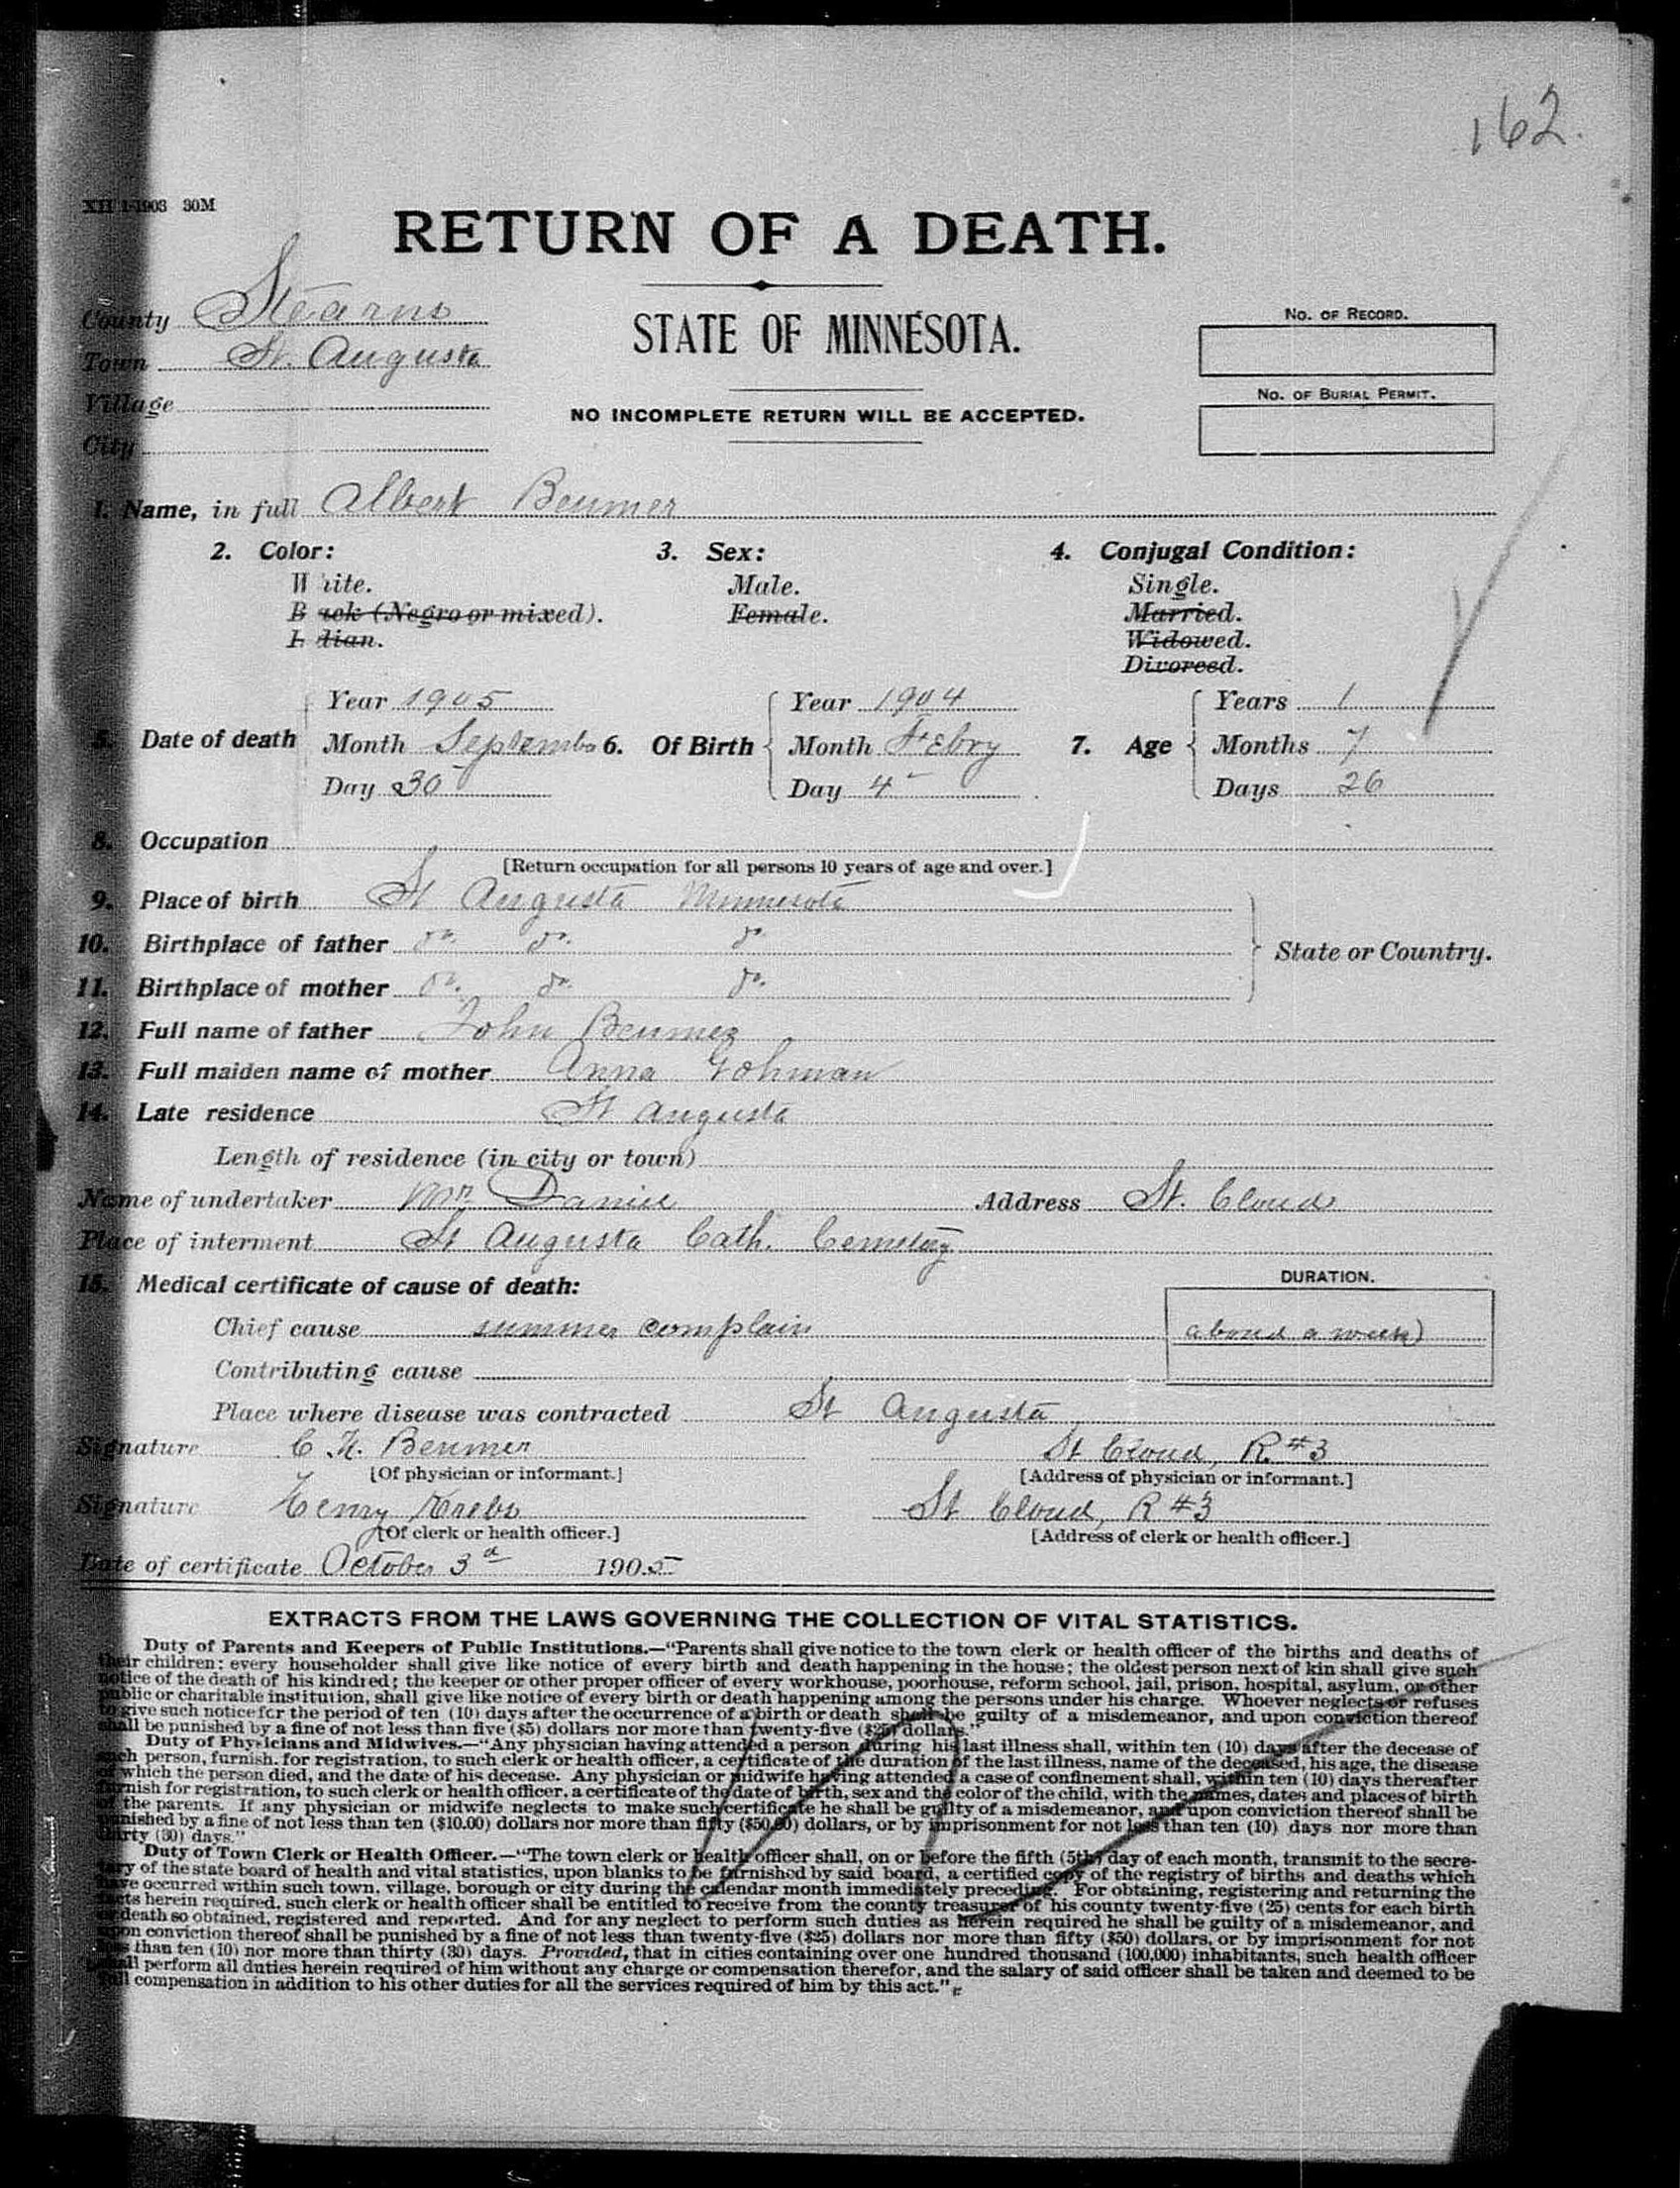 162.
XII 1-1903 30M
RETURN OF A DEATH.
County Stearns
STATE OF MINNESOTA.
No. of Record.
Town St. Augusta
Village
No. of Burial Permit.
NO INCOMPLETE RETURN WILL BE ACCEPTED.
City
1. Name, in full Albert Beumer
2. Color: 3. Sex: 4. Conjugal Condition:
White. Male. Single.
Black (Negro or mixed). Female. Married.
Indian. Widowed.
Divorced.
Year 1905 Year 1904 Years 1
5. Date of death Month Septembe 6. Of Birth Month Febry 7. Age Months 7
Day 30 Day 4 Days 26
8. Occupation
[Return occupation for all persons 10 years of age and over.]
9. Place of birth St Augusta Minnesota
10. Birthplace of father do. do. do
State or Country.
11. Birthplace of mother do. do. do.
12. Full name of father John Beumer
13. Full maiden name of mother Anna Gohman
14. Late residence St Augusta
Length of residence (in city or town)
Name of undertaker Mr Daniel Address St. Cloud
Place of interment St Augusta Cath. Cemetery
15. Medical certificate of cause of death: DURATION.
Chief cause summer complain aboud a week)
Contributing cause
Place where disease was contracted St Augusta
Signature C H. Beumer St Cloud, R. #3
[Of physician or informant.] [Address of physician or informant.]
Signature Henry Krebs St Cloud, R #3
[Of clerk or health officer.] [Address of clerk or health officer.]
Date of certificate October 3d 1905
EXTRACTS FROM THE LAWS GOVERNING THE COLLECTION OF VITAL STATISTICS.
Duty of Parents and Keepers of Public Institutions.—"Parents shall give notice to the town clerk or health officer of the births and deaths of
their children; every householder shall give like notice of every birth and death happening in the house; the oldest person next of kin shall give such
notice of the death of his kindred; the keeper or other proper officer of every workhouse, poorhouse, reform school, jail, prison, hospital, asylum, or other
public or charitable institution, shall give like notice of every birth or death happening among the persons under his charge. Whoever neglects or refuses
to give such notice for the period of ten (10) days after the occurrence of a birth or death shall be guilty of a misdemeanor, and upon conviction thereof
shall be punished by a fine of not less than five ($5) dollars nor more than twenty-five ($25) dollars."
Duty of Physicians and Midwives.—"Any physician having attended a person during his last illness shall, within ten (10) days after the decease of
such person, furnish, for registration, to such clerk or health officer, a certificate of the duration of the last illness, name of the deceased, his age, the disease
of which the person died, and the date of his decease. Any physician or midwife having attended a case of confinement shall, within ten (10) days thereafter
furnish for registration, to such clerk or health officer, a certificate of the date of birth, sex and the color of the child, with the names, dates and places of birth
of the parents. If any physician or midwife neglects to make such certificate he shall be guilty of a misdemeanor, and upon conviction thereof shall be
punished by a fine of not less than ten ($10.00) dollars nor more than fifty ($50.00) dollars, or by imprisonment for not less than ten (10) days nor more than
thirty (30) days."
Duty of Town Clerk or Health Officer.—"The town clerk or health officer shall, on or before the fifth (5th) day of each month, transmit to the secre-
tary of the state board of health and vital statistics, upon blanks to be furnished by said board, a certified copy of the registry of births and deaths which
have occurred within such town, village, borough or city during the calendar month immediately preceding. For obtaining, registering and returning the
facts herein required, such clerk or health officer shall be entitled to receive from the county treasurer of his county twenty-five (25) cents for each birth
or death so obtained, registered and reported. And for any neglect to perform such duties as herein required he shall be guilty of a misdemeanor, and
upon conviction thereof shall be punished by a fine of not less than twenty-five ($25) dollars nor more than fifty ($50) dollars, or by imprisonment for not
less than ten (10) nor more than thirty (30) days. Provided, that in cities containing over one hundred thousand (100,000) inhabitants, such health officer
shall perform all duties herein required of him without any charge or compensation therefor, and the salary of said officer shall be taken and deemed to be
full compensation in addition to his other duties for all the services required of him by this act."